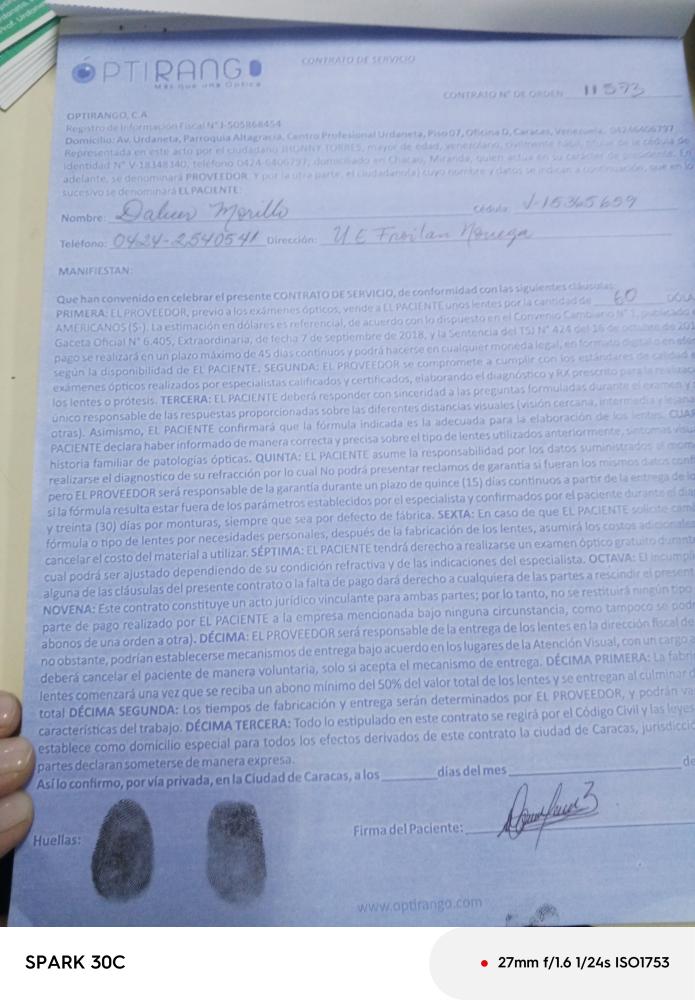 ÓPTIRANGO
Más que una Óptica
CONTRATO DE SERVICIO
CONTRATO N° DE ORDEN 11573
OPTIRANGO, C.A
Registro de Información Fiscal N° J-505868454
Domicilio: Av. Urdaneta, Parroquia Altagracia, Centro Profesional Urdaneta, Piso 07, Oficina D, Caracas, Venezuela. 04246406797.
Representada en este acto por el ciudadano JHONNY TORRES, mayor de edad, venezolano, civilmente hábil, titular de la cédula de
identidad N° V-18348340, teléfono 0424-6406797, domiciliado en Chacao, Miranda, quien actúa en su carácter de presidente. En
adelante, se denominará PROVEEDOR. Y por la otra parte, el ciudadano(a) cuyo nombre y datos se indican a continuación, que en lo
sucesivo se denominará EL PACIENTE:
Nombre: Morillo Cédula: V-15365659
Teléfono: 0424-2540541 Dirección: U E Froilan
MANIFIESTAN:
Que han convenido en celebrar el presente CONTRATO DE SERVICIO, de conformidad con las siguientes cláusulas:
PRIMERA: EL PROVEEDOR, previo a los exámenes ópticos, vende a EL PACIENTE unos lentes por la cantidad de 60
AMERICANOS ($-). La estimación en dólares es referencial, de acuerdo con lo dispuesto en el Convenio Cambiario N° 1, publicado
Gaceta Oficial N° 6.405, Extraordinaria, de fecha 7 de septiembre de 2018, y la Sentencia del TSJ N° 424 del 16 de octubre de
pago se realizará en un plazo máximo de 45 días continuos y podrá hacerse en cualquier moneda legal, en formato digital o en
según la disponibilidad de EL PACIENTE. SEGUNDA: EL PROVEEDOR se compromete a cumplir con los estándares de calidad
exámenes ópticos realizados por especialistas calificados y certificados, elaborando el diagnóstico y RX prescrito para la
los lentes o prótesis. TERCERA: EL PACIENTE deberá responder con sinceridad a las preguntas formuladas durante el examen y
único responsable de las respuestas proporcionadas sobre las diferentes distancias visuales (visión cercana, intermedia y
otras). Asimismo, EL PACIENTE confirmará que la fórmula indicada es la adecuada para la elaboración de los lentes.
PACIENTE declara haber informado de manera correcta y precisa sobre el tipo de lentes utilizados anteriormente, síntomas
historia familiar de patologías ópticas. QUINTA: EL PACIENTE asume la responsabilidad por los datos suministrados al
realizarse el diagnostico de su refracción por lo cual No podrá presentar reclamos de garantía si fueran los mismos datos
pero EL PROVEEDOR será responsable de la garantía durante un plazo de quince (15) días continuos a partir de la entrega de
si la fórmula resulta estar fuera de los parámetros establecidos por el especialista y confirmados por el paciente durante el
y treinta (30) días por monturas, siempre que sea por defecto de fábrica. SEXTA: En caso de que EL PACIENTE solicite
fórmula o tipo de lentes por necesidades personales, después de la fabricación de los lentes, asumirá los costos
cancelar el costo del material a utilizar. SÉPTIMA: EL PACIENTE tendrá derecho a realizarse un examen óptico gratuito
cual podrá ser ajustado dependiendo de su condición refractiva y de las indicaciones del especialista. OCTAVA: El
alguna de las cláusulas del presente contrato o la falta de pago dará derecho a cualquiera de las partes a rescindir el
NOVENA: Este contrato constituye un acto jurídico vinculante para ambas partes; por lo tanto, no se restituirá ningún tipo
parte de pago realizado por EL PACIENTE a la empresa mencionada bajo ninguna circunstancia, como tampoco se
abonos de una orden a otra). DÉCIMA: EL PROVEEDOR será responsable de la entrega de los lentes en la dirección fiscal de
no obstante, podrían establecerse mecanismos de entrega bajo acuerdo en los lugares de la Atención Visual, con un cargo
deberá cancelar el paciente de manera voluntaria, solo si acepta el mecanismo de entrega. DÉCIMA PRIMERA: La
lentes comenzará una vez que se reciba un abono mínimo del 50% del valor total de los lentes y se entregan al culminar
total DÉCIMA SEGUNDA: Los tiempos de fabricación y entrega serán determinados por EL PROVEEDOR, y podrán
características del trabajo. DÉCIMA TERCERA: Todo lo estipulado en este contrato se regirá por el Código Civil y las leyes
establece como domicilio especial para todos los efectos derivados de este contrato la ciudad de Caracas,
partes declaran someterse de manera expresa.
Así lo confirmo, por vía privada, en la Ciudad de Caracas, a los ______días del mes ______ de
Huellas:
Firma del Paciente:
www.optirango.com
SPARK 30C
27mm f/1.6 1/24s ISO1753